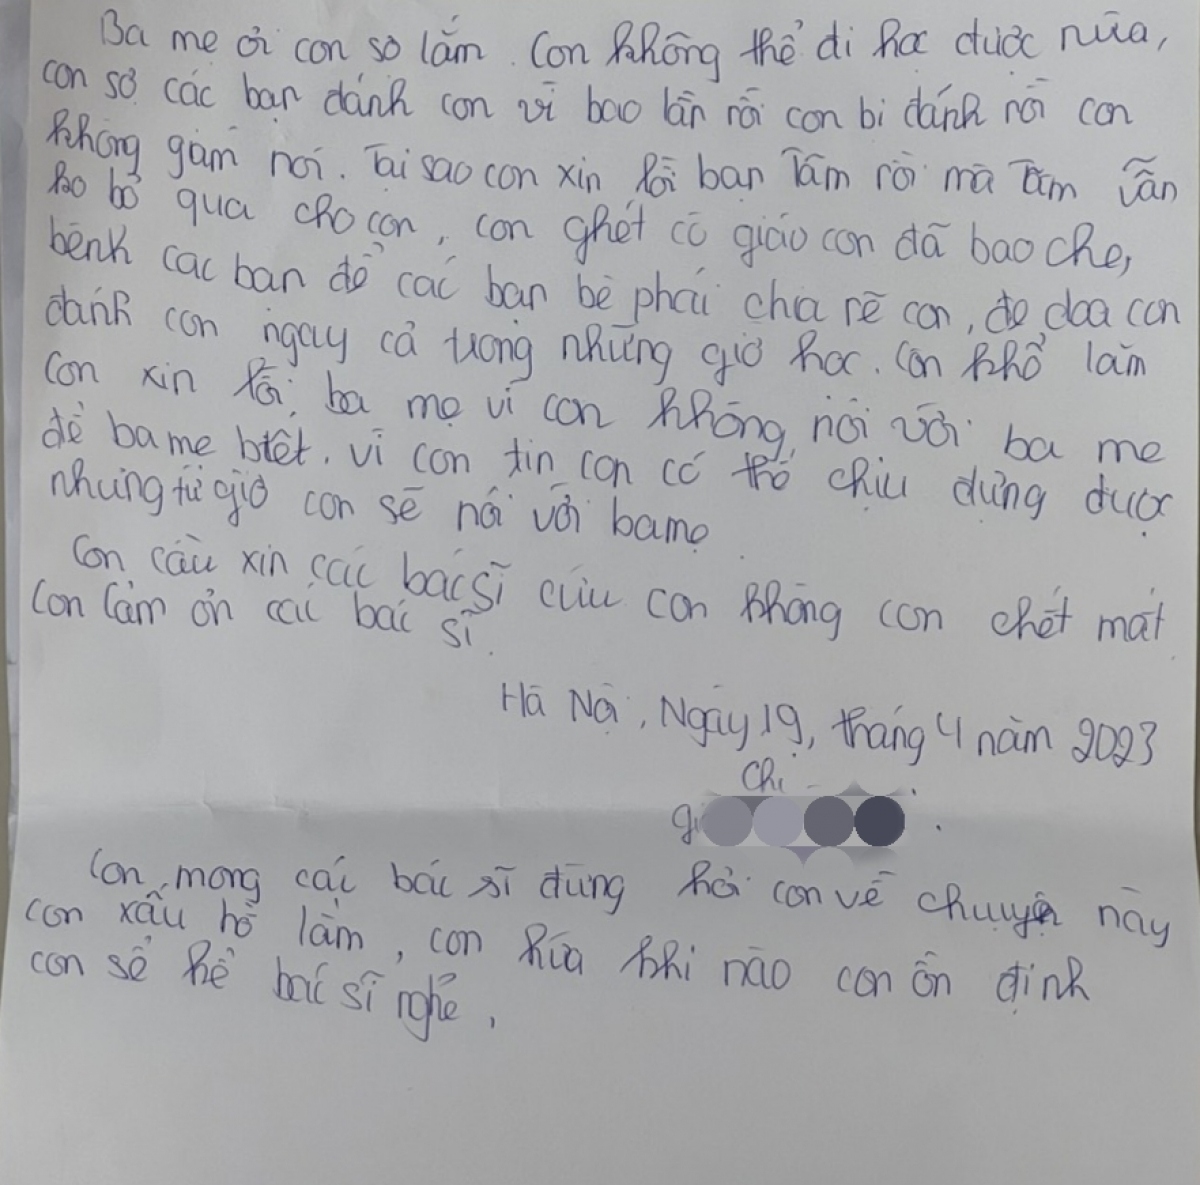 Ba mẹ ơi con sợ lắm. Con không thể đi học được nữa,
con sợ các bạn đánh con vì bao lần rồi con bị đánh rồi con
không giám nói. Tại sao con xin lỗi bạn Tâm rồi mà Tâm vẫn
ko bỏ qua cho con, con ghét cô giáo con đã bao che,
bênh các bạn để các bạn bè phái chia rẽ con, đe doạ con
đánh con ngay cả trong những giờ học. Con khổ lắm
Con xin lỗi ba mẹ vì con không nói với ba mẹ
để ba mẹ biết. vì con tin con có thể chịu đựng được
nhưng từ giờ con sẽ nói với ba mẹ
Con cầu xin các bác sĩ cứu con không con chết mất
Con cảm ơn các bác sĩ.
Hà Nội, Ngày 19, tháng 4 năm 2023
Chị
Con mong các bác sĩ đừng hỏi con về chuyện này
con xấu hổ lắm, con hứa khi nào con ổn định
con sẽ kể bác sĩ nghe,